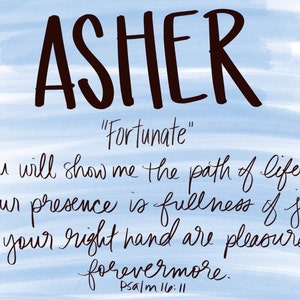 ASHER
"Fortunate"
u will show me the path of life
ur presence is fullness of
your right hand are pleasur
forevermore.
Psalm 16:11